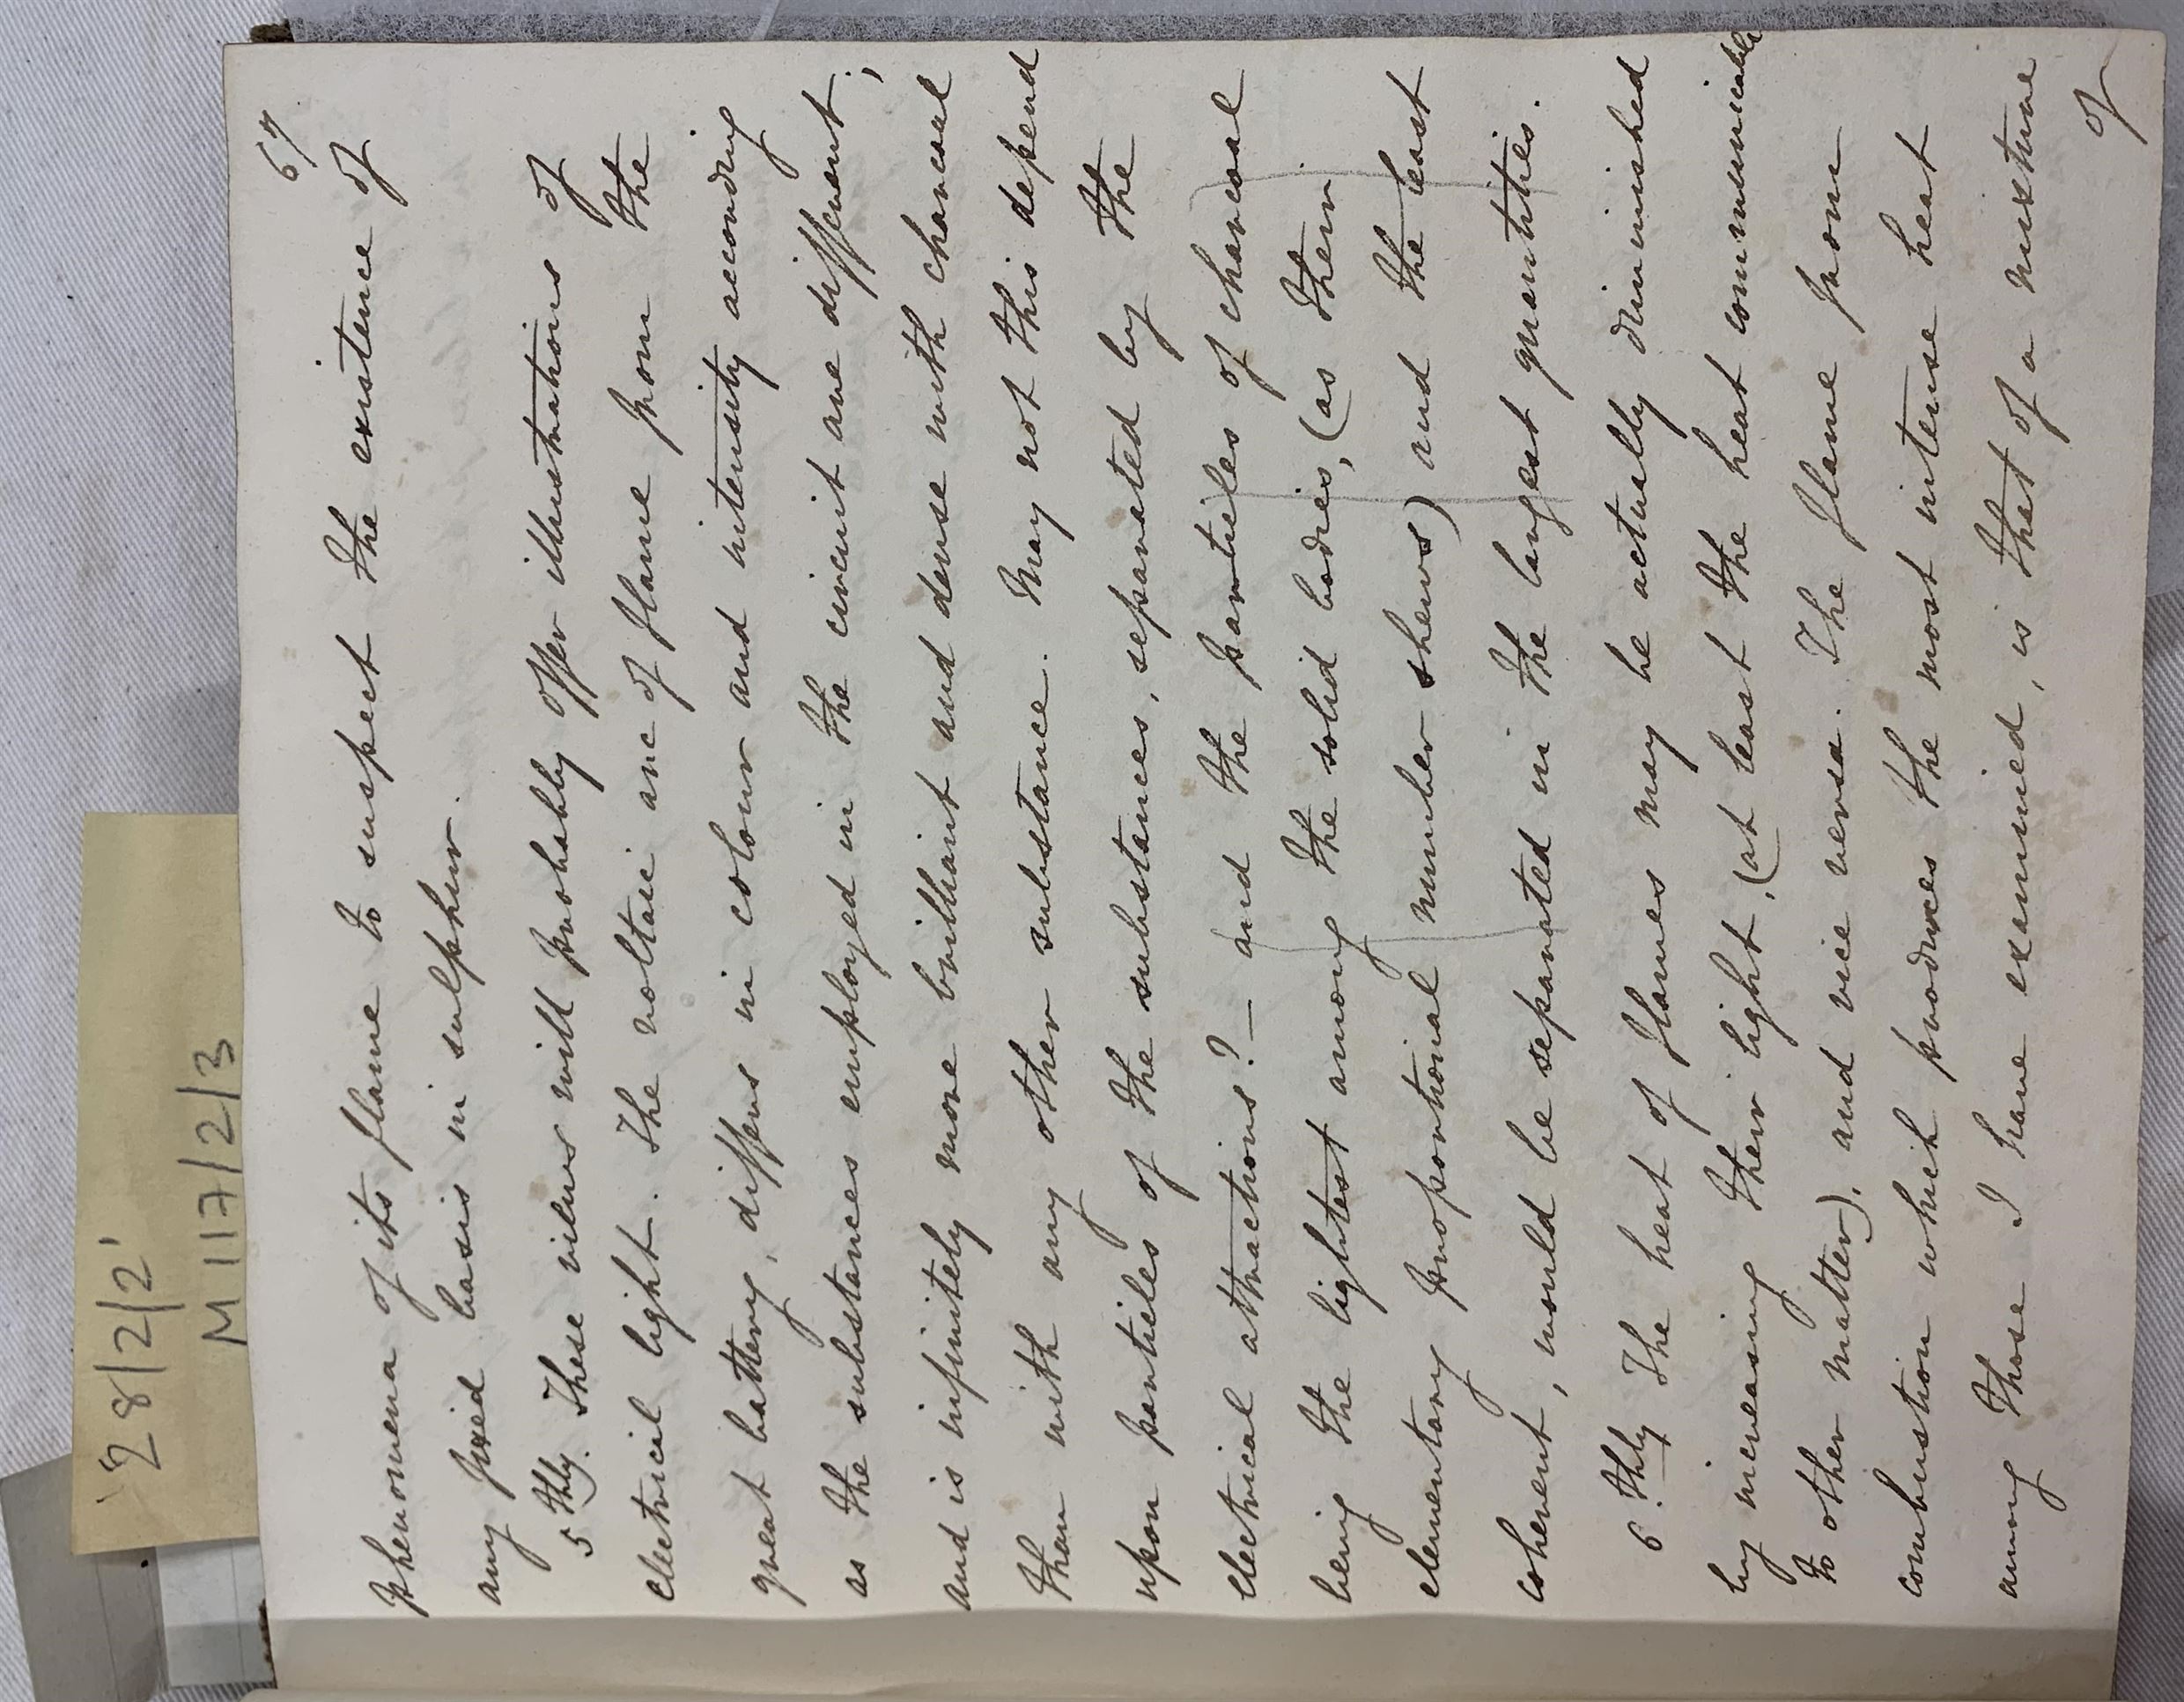 '28/2/2'
M 117/2/3
67
phenomena of its flame to suspect the existence of
any fixed basis in sulphur.
5thly. These views will probably offer illustrations of
electrical light. The voltaic arc of flame from the
great battery, differs in colour and intensity according
as the substances employed in the circuit are different;
and is infinitely more brilliant and dense with charcoal
than with any other substance. May not this depend
upon particles of the substances, separated by the
electrical attractions? – and the particles of charcoal
being the lightest among the solid bodies, (as their
elementary proportional number shews) and the least
coherent, would be separated in the largest quantities.
6.thly The heat of flames may be actually diminished
by increasing their light, (at least the heat communicable
to other matter), and vice versa. The flame from
combustion which produces the most intense heat
among those I have examined, is that of a mixture
of